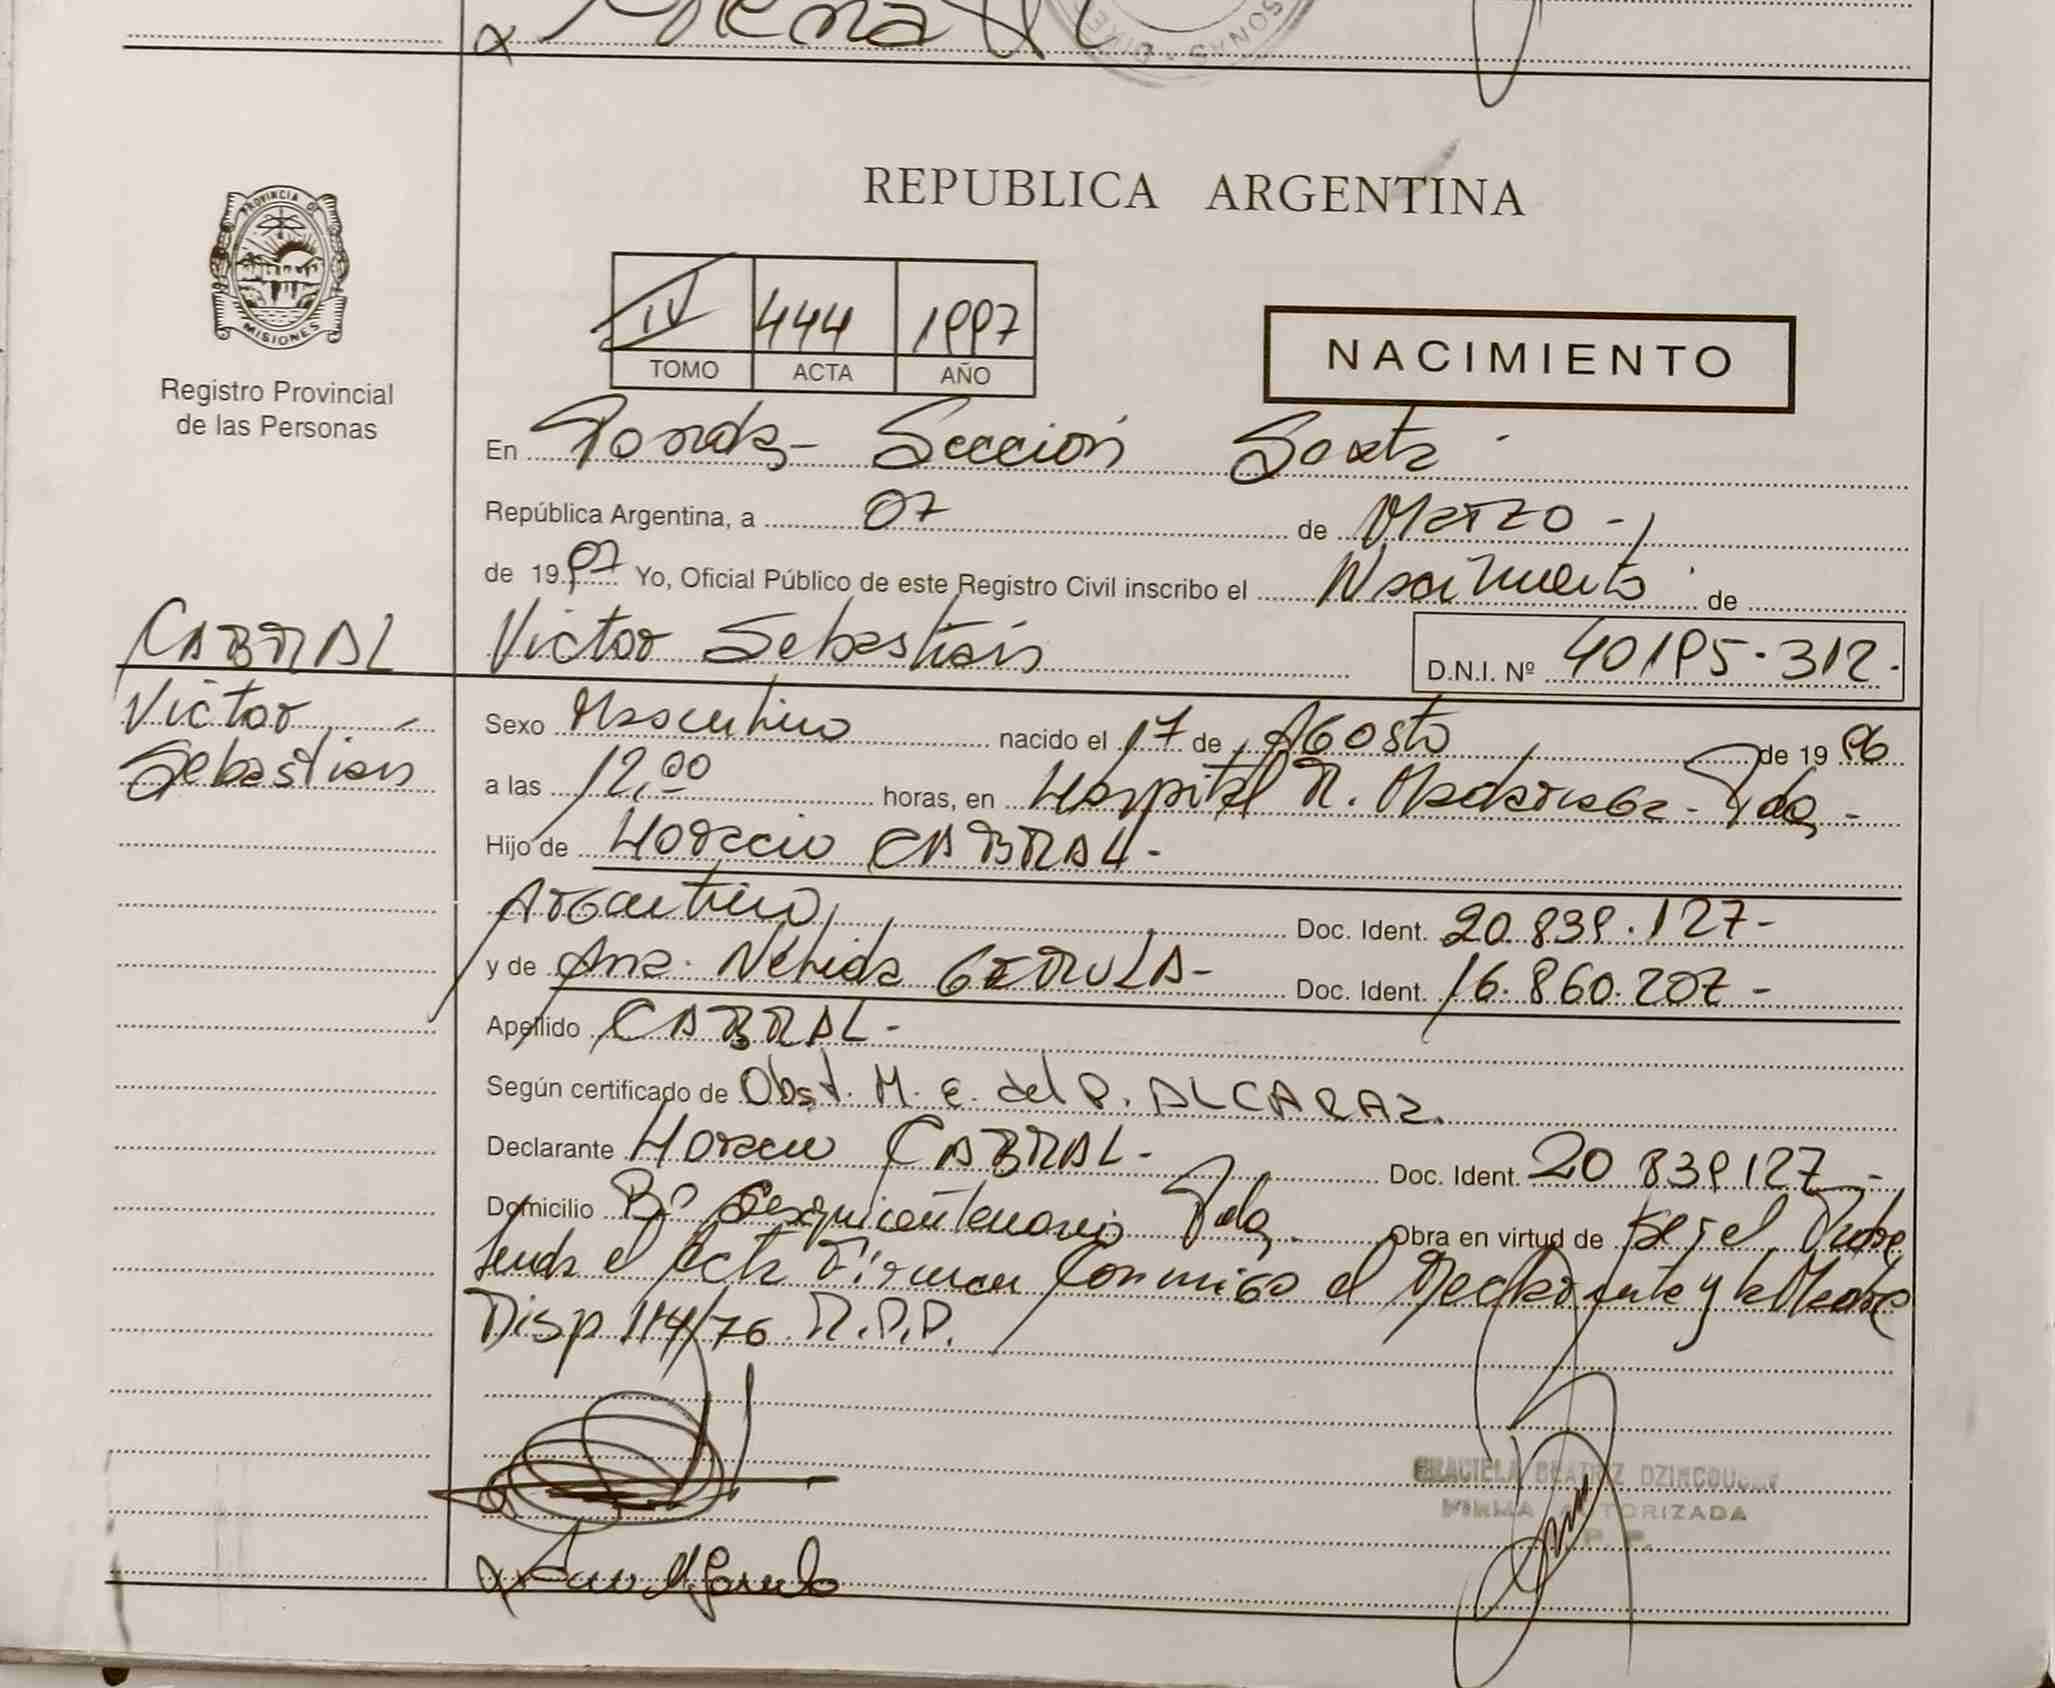 SONAS
REPUBLICA ARGENTINA
PROVINCIA DE
MISIONES
Registro Provincial
de las Personas
IV 444 1997
TOMO ACTA AÑO
NACIMIENTO
En Posadas - Sección Sexta -
República Argentina, a 07 de Marzo -
de 1997 Yo, Oficial Público de este Registro Civil inscribo el Nacimiento de
CABRAL
Victor Sebastián
D.N.I. Nº 40195.312.
Victor
Sebastián
Sexo Masculino nacido el 17 de Agosto de 1996
a las 12,00 horas, en Hospital R. Madariaga - Pdas -
Hijo de Horacio CABRAL -
Argentino, Doc. Ident. 20.839.127 -
y de Ana Nélida GERULA - Doc. Ident. 16.860.207 -
Apellido CABRAL -
Según certificado de Obst. M. E. del P. ALCARAZ.
Declarante Horacio CABRAL - Doc. Ident. 20 839 127 -
Domicilio Bº Sesquicentenario Pdas. Obra en virtud de ser el Padre
Leída el Acta Firman Conmigo el Declarante y la Madre
Disp 114/76 R.P.P.
GRACIELA BEATRIZ
FIRMA AUTORIZADA